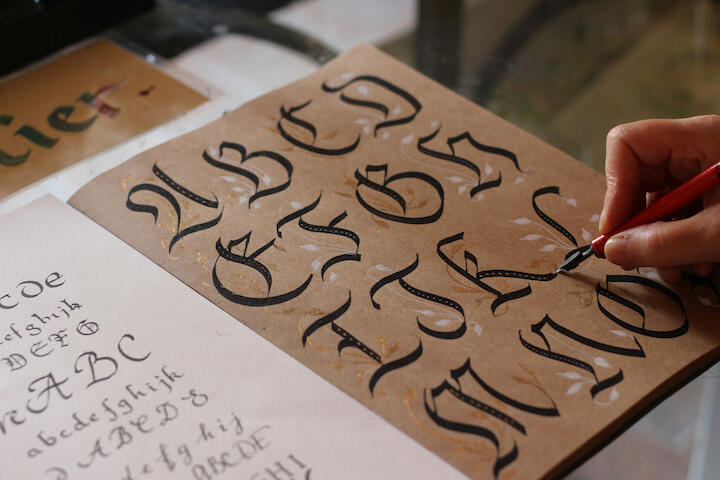 tier
A B C D
E F G H
I J K L
M N O
cDe
efghijk
DEFG
ABC
abcdefghijk
ABCDE
efghij
ABCDE
GHI